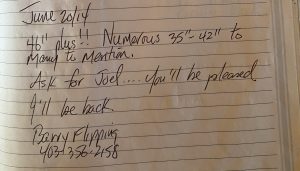 June 20/14
46" plus!! Numerous 35"-42" to
Many to Mention.
Ask for Joel.... you'll be pleased
I'll be back.
Barry Flipping
403-356-2158